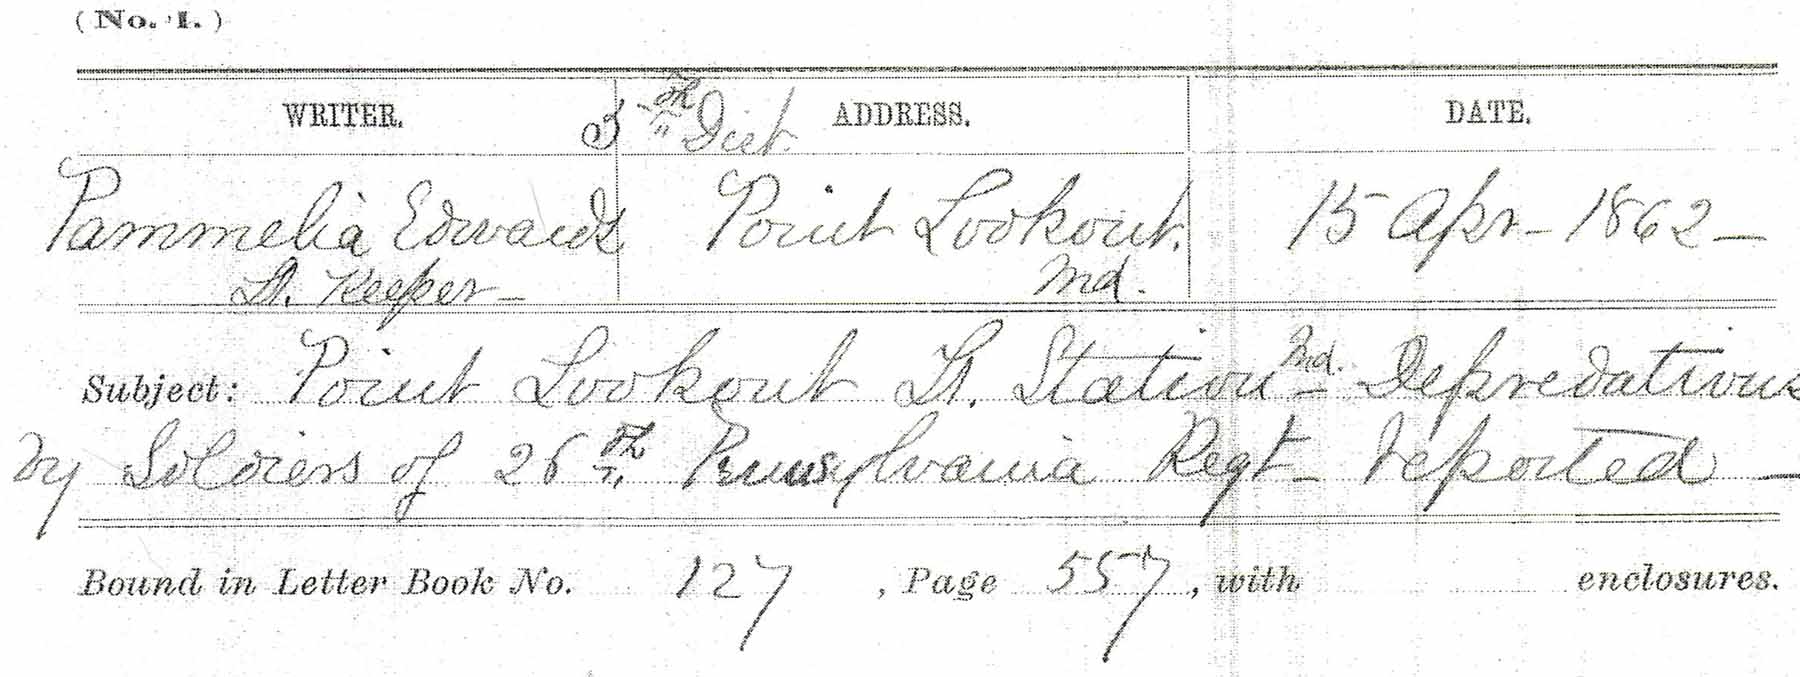 (No. 1.)
WRITER. 5th Dist. ADDRESS. DATE.
Pammelia Edwards Point Lookout. 15 Apr - 1862 -
Lt. Keeper - Md.
Subject: Point Lookout Lt. Station Md. - Depredations
by Soldiers of 26th Pennsylvania Regt - reported -
Bound in Letter Book No. 127, Page 557, with enclosures.